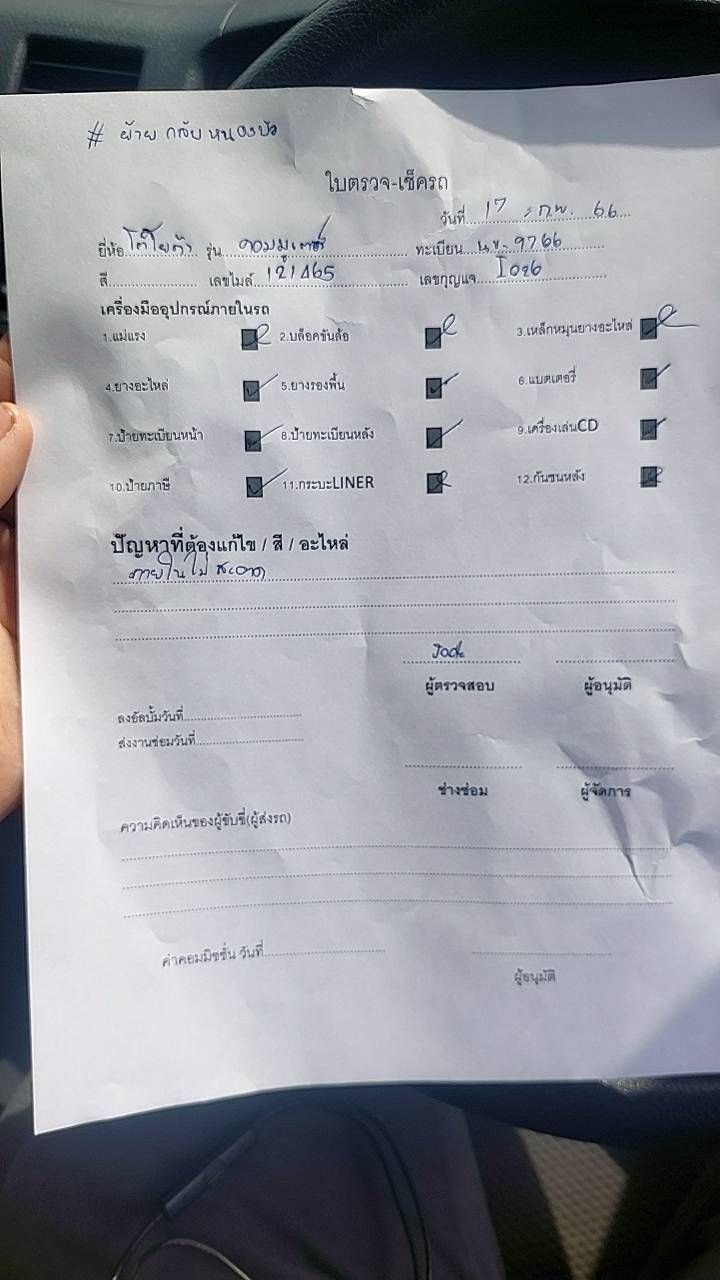 # ย้าย กลับ หนองบัว
ใบตรวจ-เช็ครถ
วันที่ 17 ก.พ. 66
ยี่ห้อ โตโยต้า รุ่น คอมมูเตอร์ ทะเบียน นข-9766
สี เลขไมล์ 121465 เลขกุญแจ
เครื่องมืออุปกรณ์ภายในรถ
1.แม่แรง 2.บล็อคขันล้อ 3.เหล็กหมุนยางอะไหล่
4.ยางอะไหล่ 5.ยางรองพื้น 6.แบตเตอรี่
7.ป้ายทะเบียนหน้า 8.ป้ายทะเบียนหลัง 9.เครื่องเล่นCD
10.ป้ายภาษี 11.กระบะLINER 12.กันชนหลัง
ปัญหาที่ต้องแก้ไข / สี / อะไหล่
ภายในไม่สะอาด
ผู้ตรวจสอบ ผู้อนุมัติ
ลงอัลบั้มวันที่
ส่งงานซ่อมวันที่
ช่างซ่อม ผู้จัดการ
ความคิดเห็นของผู้ขับขี่(ผู้ส่งรถ)
ค่าคอมมิชชั่น วันที่
ผู้อนุมัติ